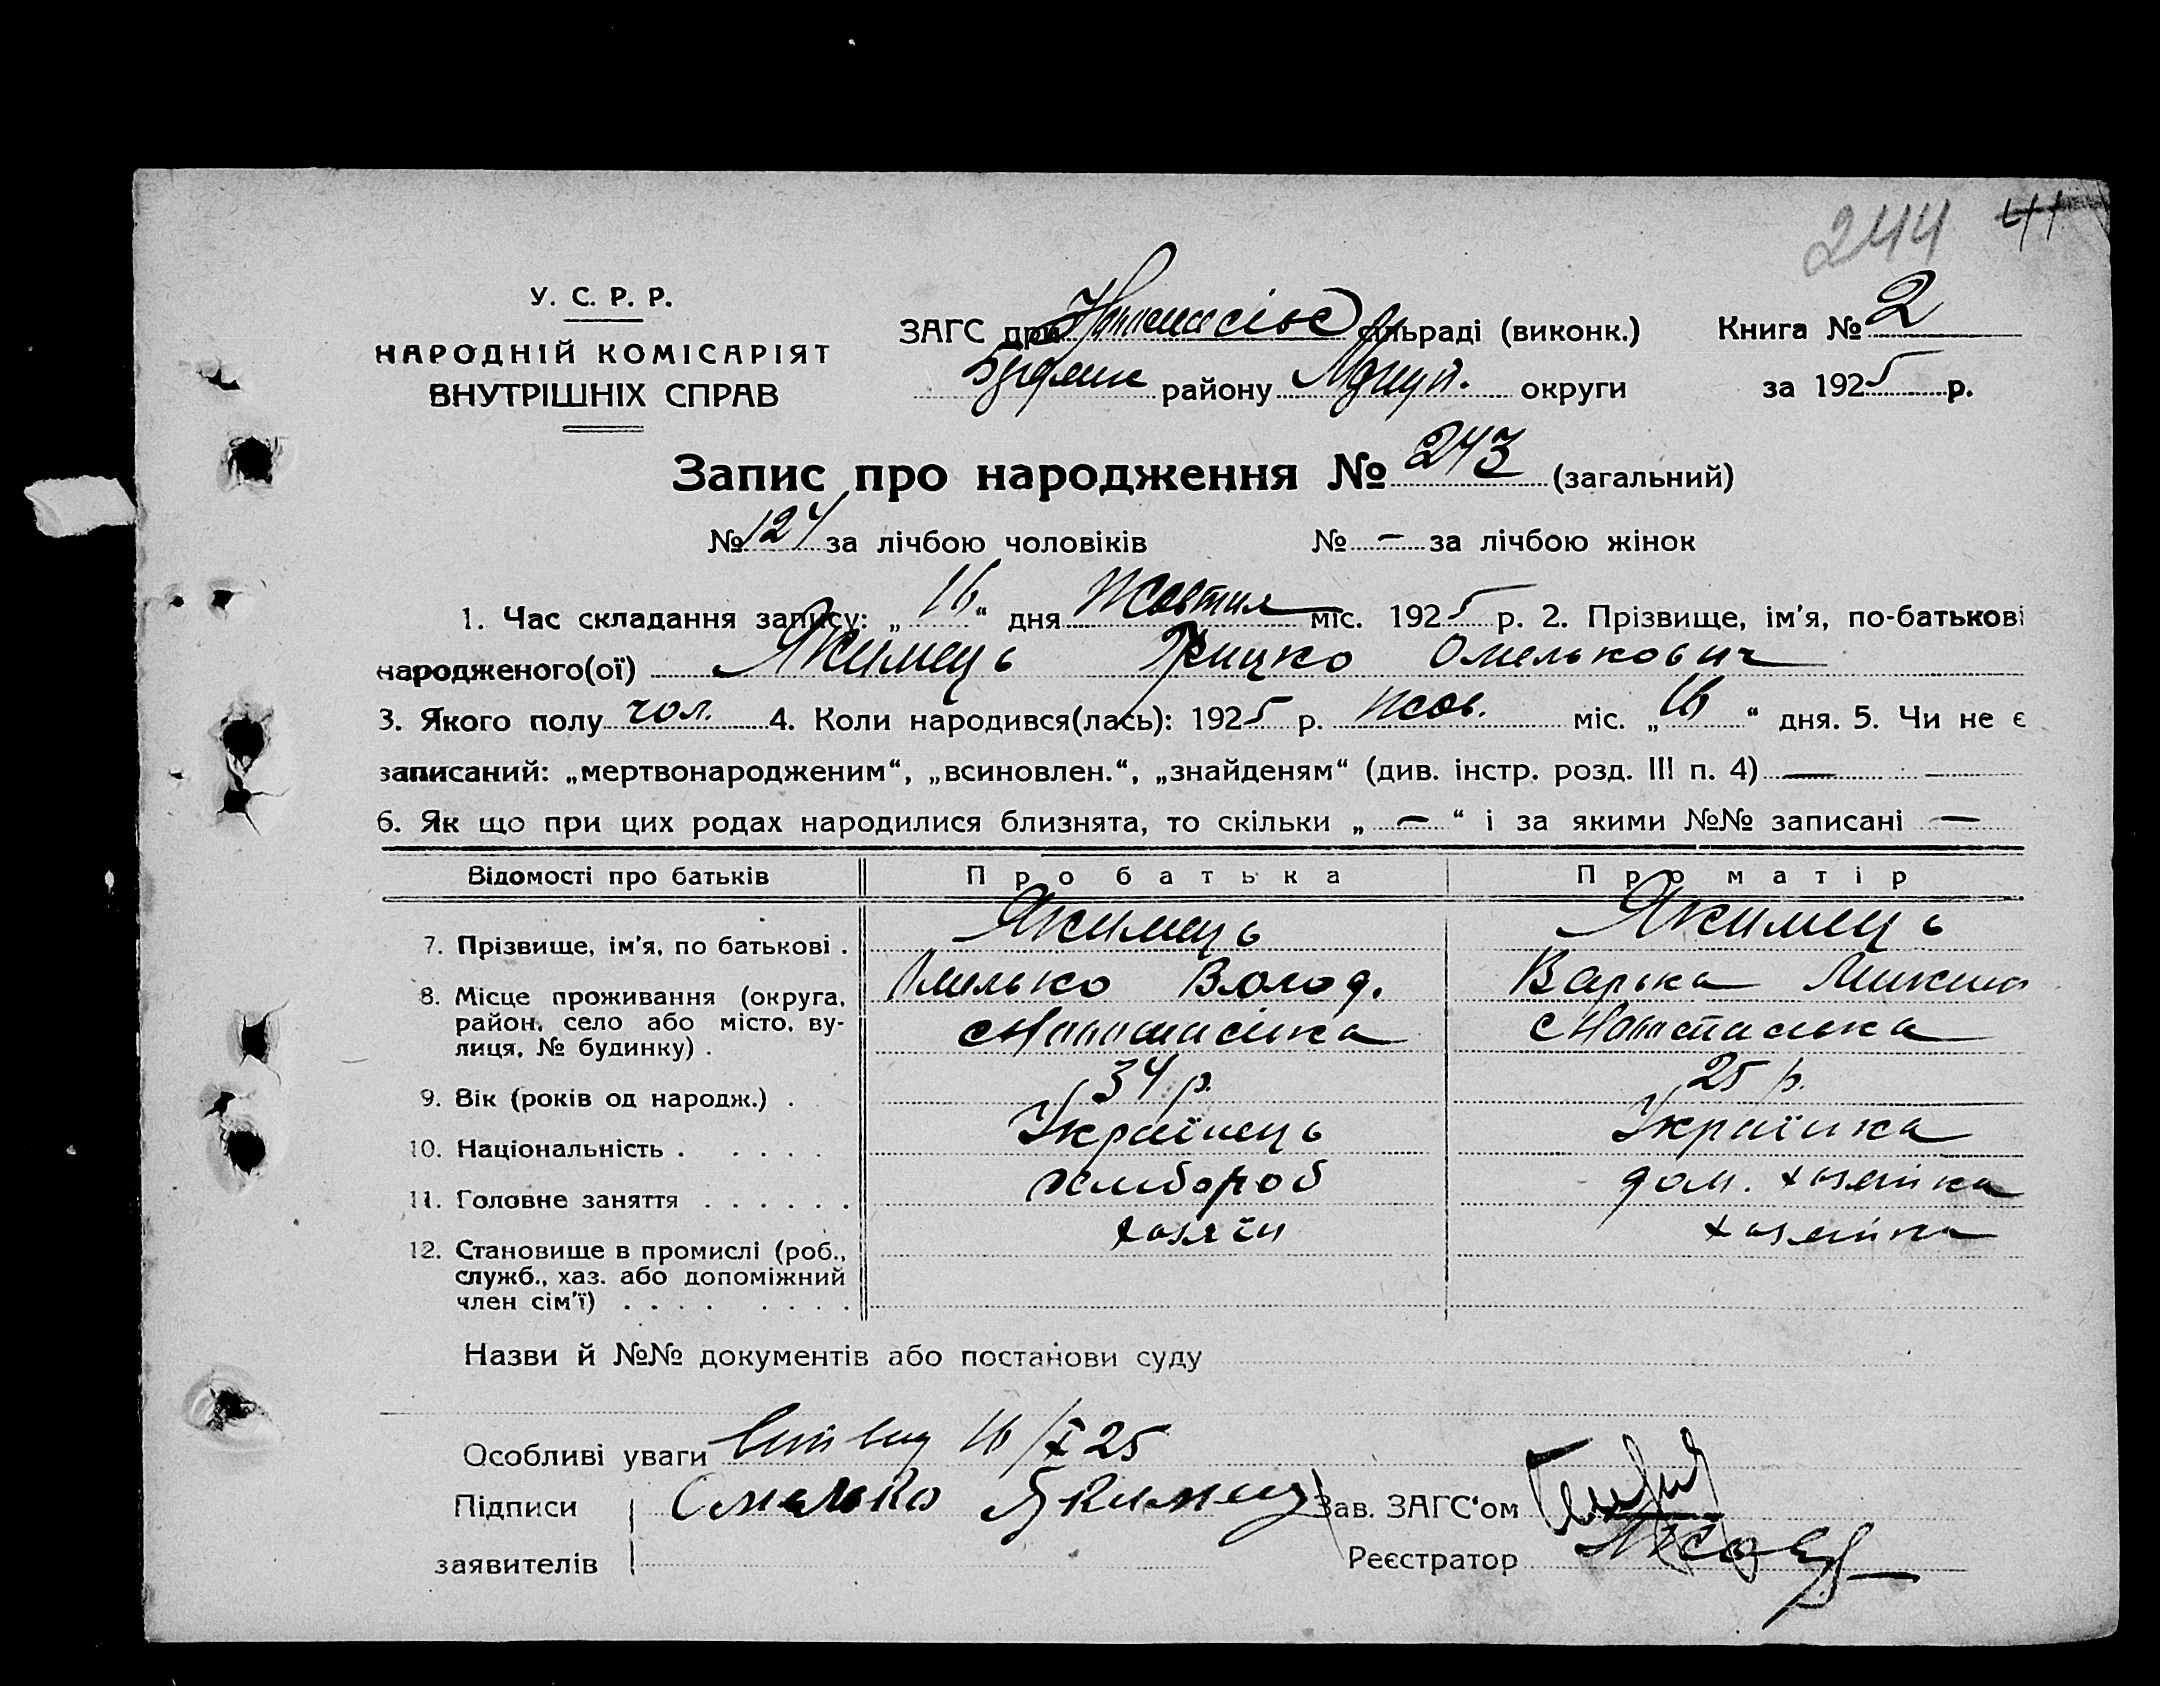 244 41
У. С. Р. Р.
НАРОДНІЙ КОМІСАРІЯТ
ВНУТРІШНІХ СПРАВ
ЗАГС при сільраді (виконк.) Книга № 2
району округи за 1925 р.
Запис про народження № 243 (загальний)
№ 124 за лічбою чоловіків № — за лічбою жінок
1. Час складання запису: „16“ дня Жовтня міс. 1925 р. 2. Прізвище, ім'я, по-батькові
народженого(ої) Якимець Грицко Омелькович
3. Якого полу чол. 4. Коли народився(лась): 1925 р. жов. міс. „16“ дня. 5. Чи не є
записаний: „мертвонародженим“, „всиновлен.“, „знайденям“ (див. інстр. розд. III п. 4) — —
6. Як що при цих родах народилися близнята, то скільки „—“ і за якими №№ записані —
Відомості про батьків Про батька Про матір
7. Прізвище, ім'я, по батькові . Якимець Якимець
Омелько Волод. Варька
8. Місце проживання (округа,
район, село або місто, ву-
лиця, № будинку) .
9. Вік (років од народж.) . 34 р. 25 р.
10. Національність . . . . . Українець Українка
11. Головне заняття . . . . . . хлибороб дом. хозяйка
12. Становище в промислі (роб., хозяїн хозяйка
служб., хаз. або допоміжний
член сім'ї) . . . . . . . .
Назви й №№ документів або постанови суду
Особливі уваги 16/X 25
Підписи Омелько Якимец Зав. ЗАГС'ом
заявителів Реєстратор